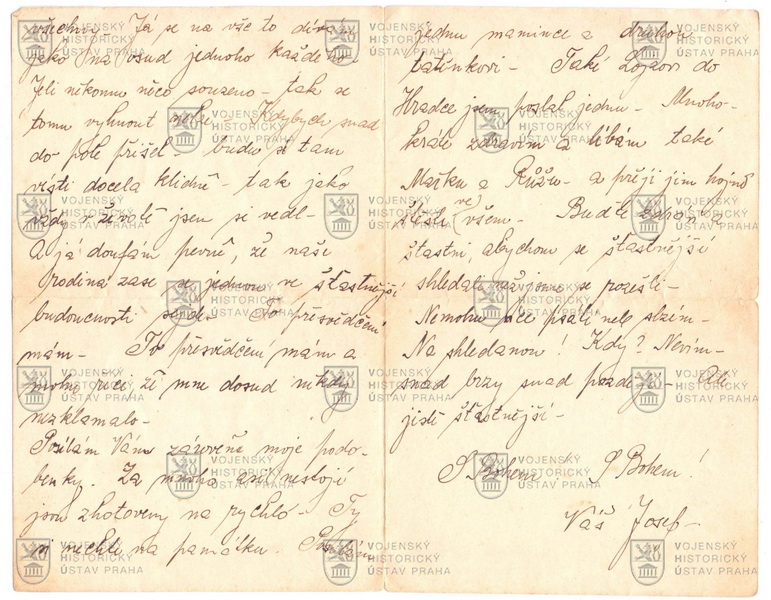 všechny. Já se na vše to dívám
jako na osud jednoho každého.
Jeli někomu něco souzeno – tak se
tomu vyhnout nelze. Kdybych snad
do pole přišel – budu si tam
vésti docela klidně – tak jako
vždy v životě jsem si vedl –
A já doufám pevně, že naše
rodina zase se jednou ve šťastnější
budoucnosti sejde. To přesvědčení
mám – To přesvědčení mám a
mohu říci že mne dosud nikdy
nezklamalo –
Posílám Vám zároveň moje podo-
benky. Za mnoho ani nestojí
jsou zhotoveny na rychlo – Ty
si nechte na památku.
jednu mamince a druhou
tatínkovi – Také Lojzovi do
Hradce jsem poslal jednu – Mnoho-
kráte zdravím a líbám také
Mařku a Růžu – a přeji jim hojně
štěstí ve všem – Buďte zdrávi a
šťastni, abychom se šťastnější
shledali než jsme se rozešli –
Nemohu více psáti nele slzím –
Na shledanou! Kdy? Nevím –
snad brzy snad později –
jistě šťastnější –
S Bohem! S Bohem!
Váš Josef –
VOJENSKÝ
HISTORICKÝ
ÚSTAV PRAHA